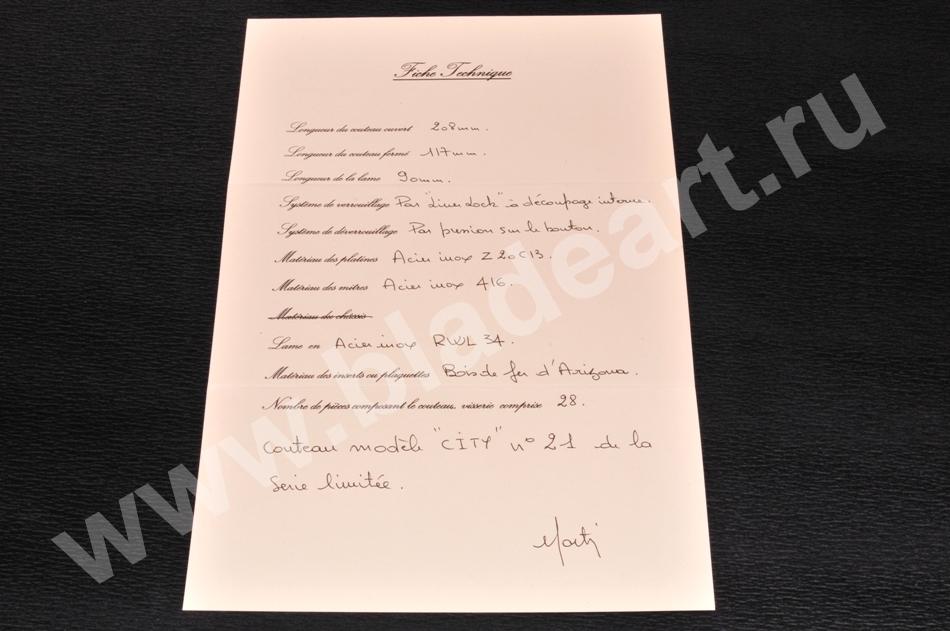 Fiche Technique
Longueur du couteau ouvert 208mm.
Longueur du couteau fermé 117mm.
Longueur de la lame 90mm.
Système de verrouillage Par "Liner Lock" à découpage interne.
Système de déverrouillage Par pression sur le bouton.
Matériau des platines Acier inox Z20C13.
Matériau des mitres Acier inox 416.
Matériau du chassis
Lame en Acier inox RWL 34.
Matériau des inserts ou plaquettes Bois de fer d'Arizona.
Nombre de pièces composant le couteau, visserie comprise 28.
Couteau modèle "CITY" n° 21 de la
Serie limitée.
www.bladeart.ru